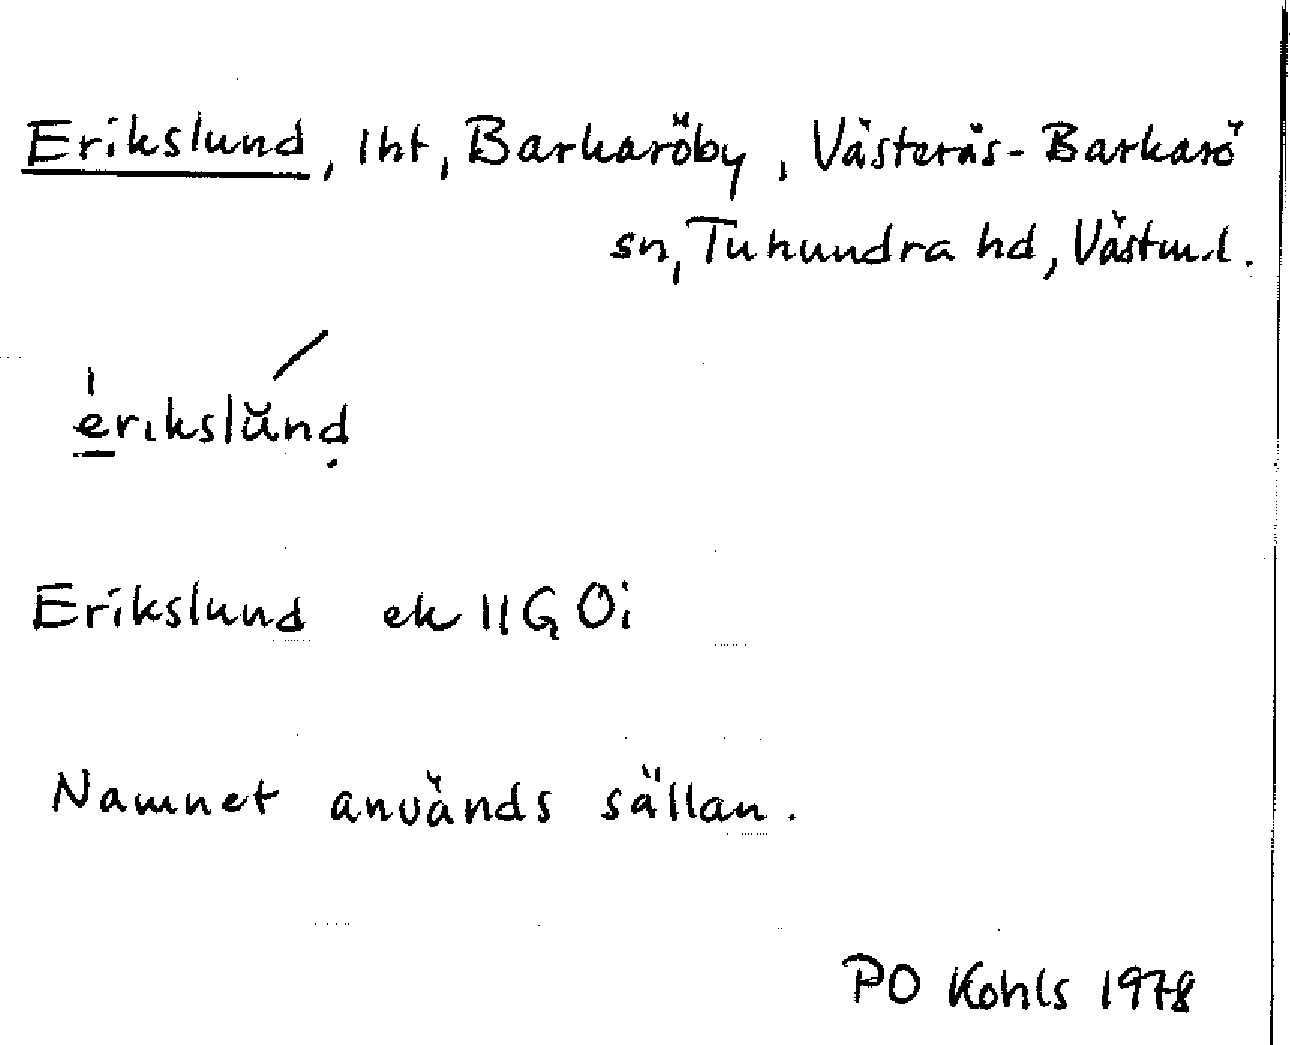 Erikslund, lht, Barkaröby, Västerås-Barkarö
sn, Tuhundra hd, Västml.
erikslŭnd
Erikslund ek 11G 0i
Namnet används sällan.
PO Kohls 1978